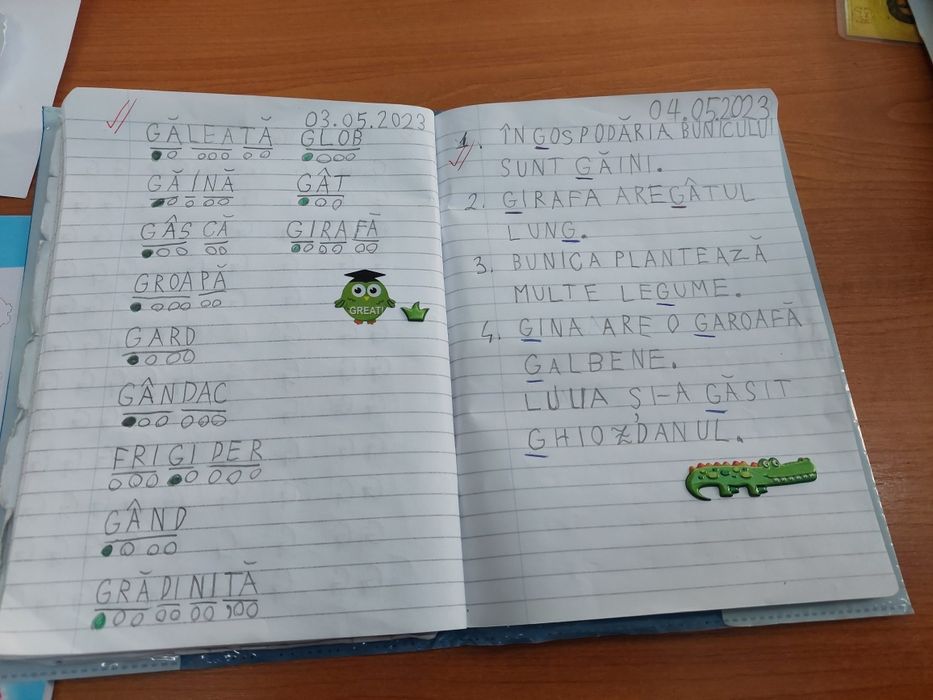 03.05.2023
GĂLEATĂ GLOB
GĂINĂ GÂT
GÂSCĂ GIRAFĂ
GROAPĂ
GREAT!
GARD
GÂNDAC
FRIGIDER
GÂND
GRĂDINIȚĂ
04.05.2023
1. ÎN GOSPODĂRIA BUNICULUI
SUNT GĂINI.
2. GIRAFA ARE GÂTUL
LUNG.
3. BUNICA PLANTEAZĂ
MULTE LEGUME.
4. GINA ARE O GAROAFĂ
GALBENE.
LULIA ȘI-A GĂSIT
GHIOZDANUL.